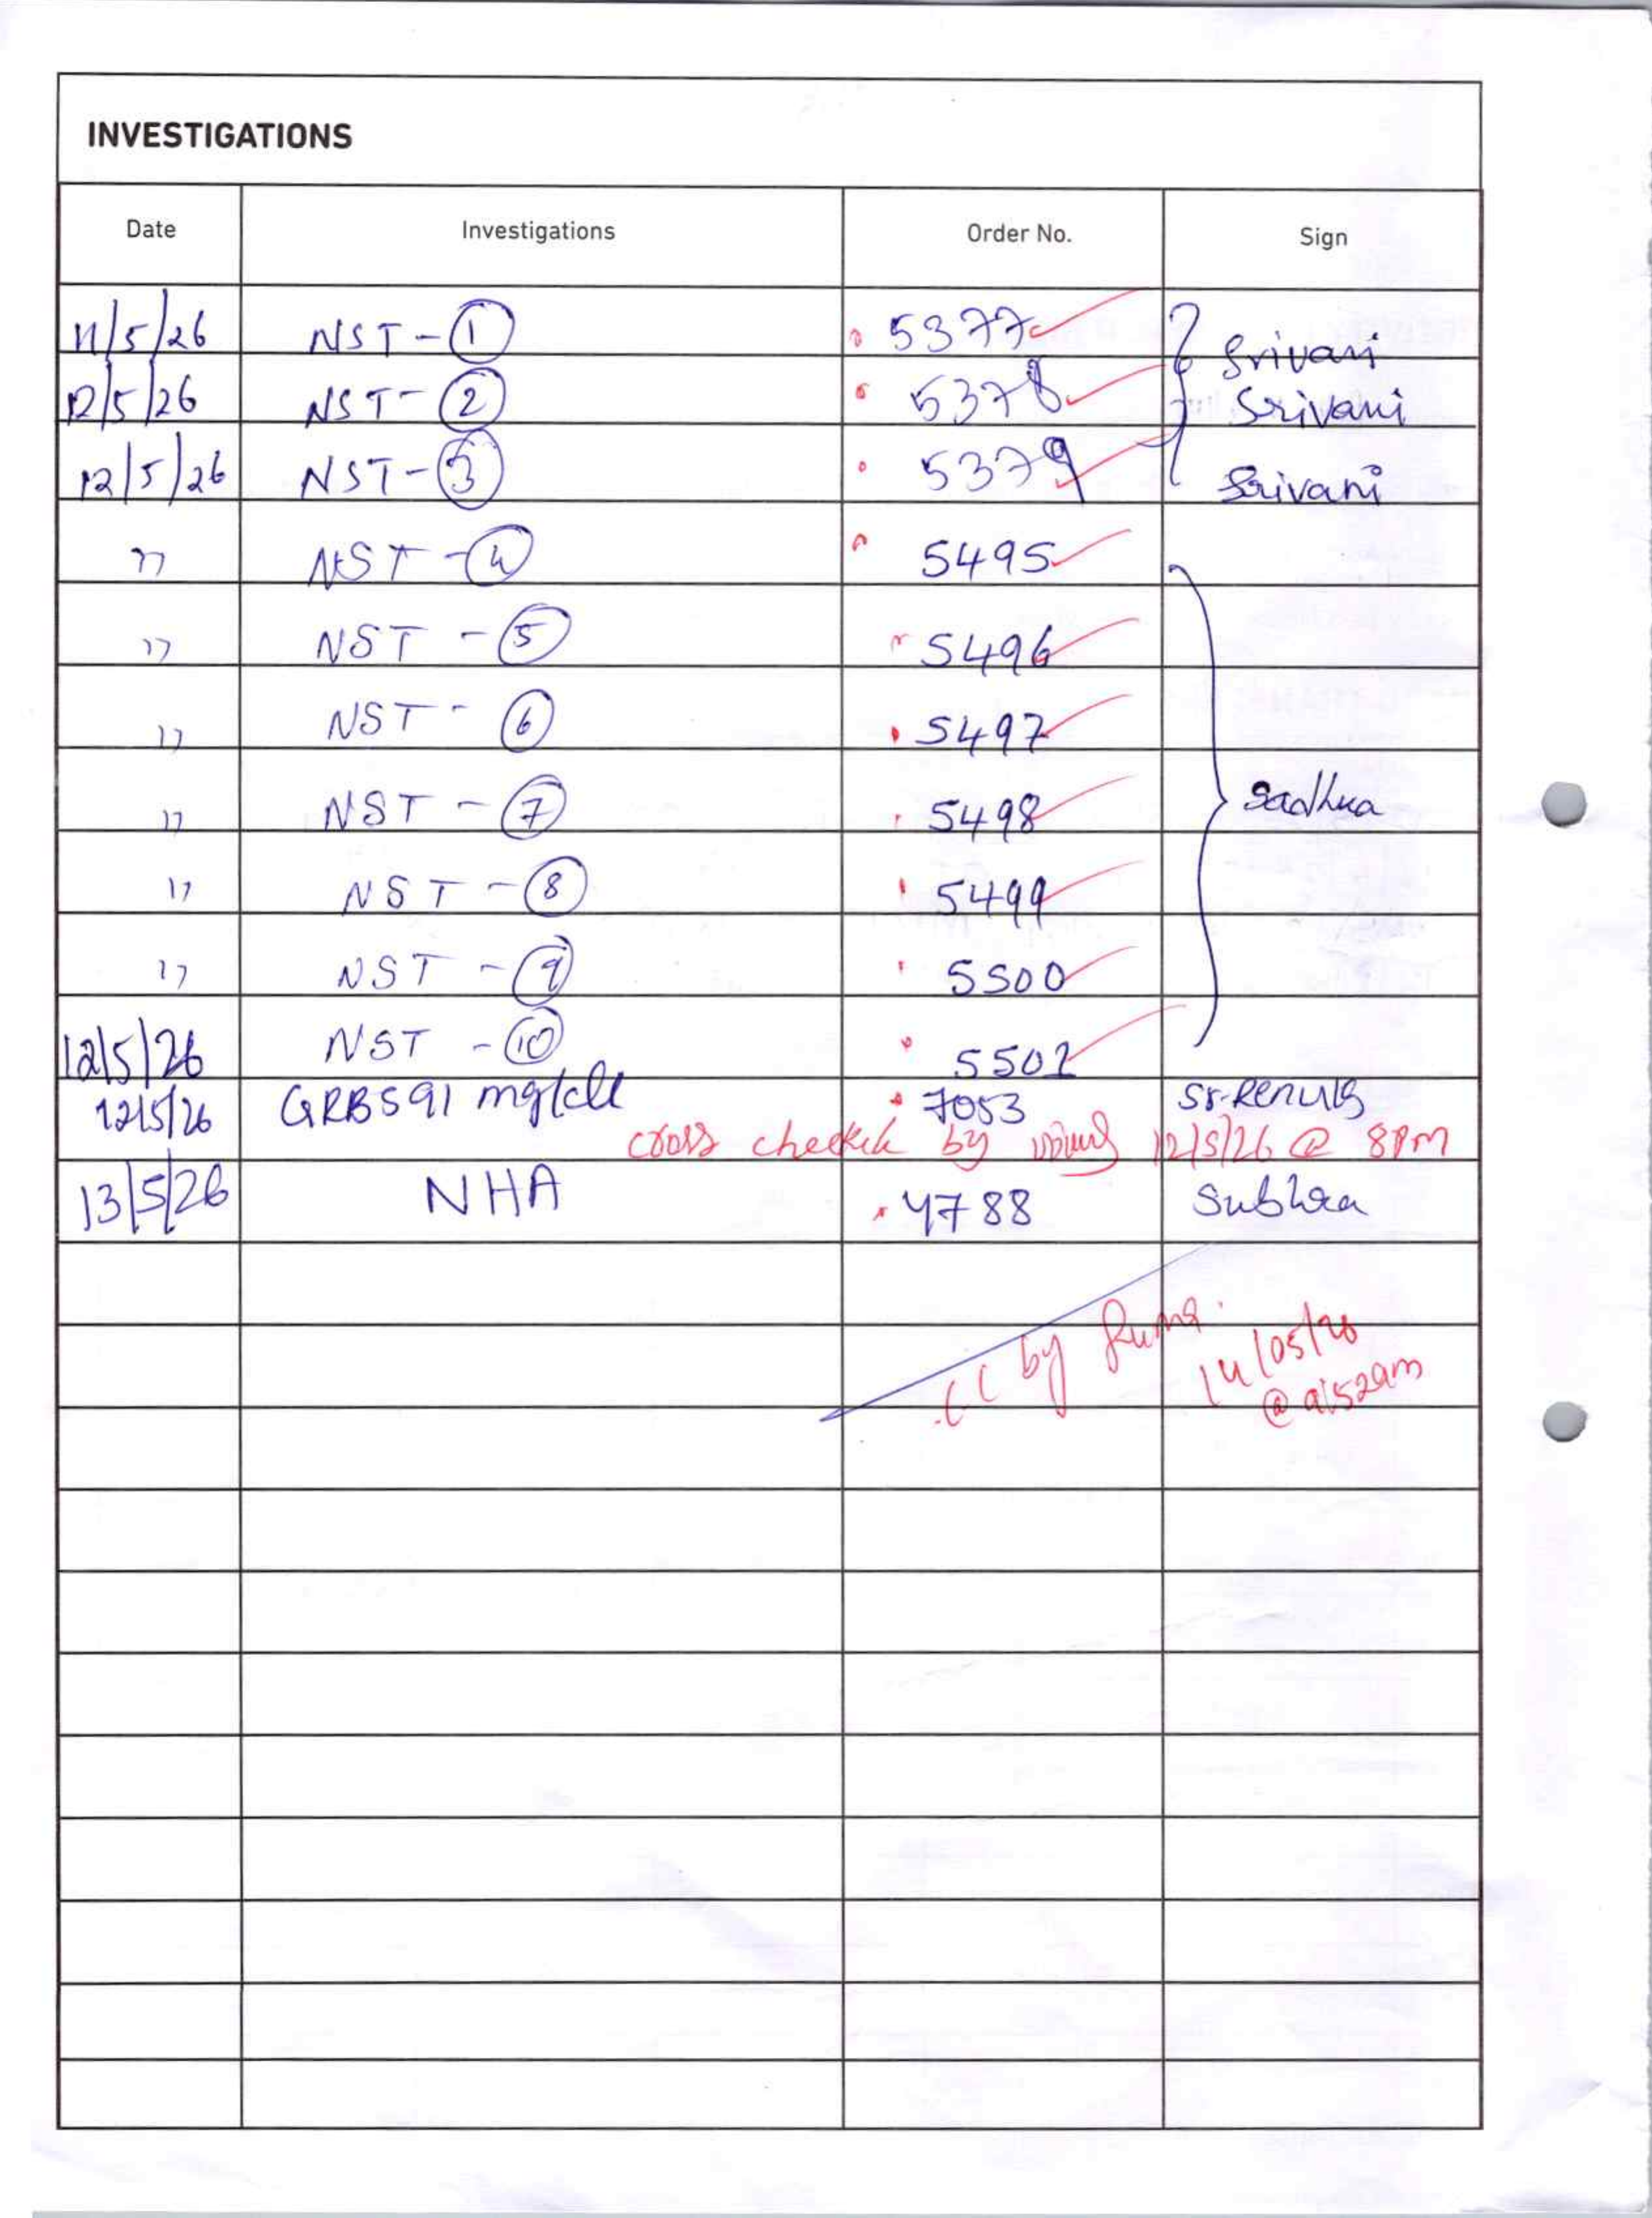 INVESTIGATIONS
Date Investigations Order No. Sign
11/5/26 NST - ① 5377 Srivani
12/5/26 NST - ② 5378 Srivani
12/5/26 NST - ③ 5379 Srivani
" NST - ④ 5495
" NST - ⑤ 5496
" NST - ⑥ 5497
" NST - ⑦ 5498 Sadhua
" NST - ⑧ 5499
" NST - ⑨ 5500
12/5/26 NST - ⑩ 5501
12/5/26 GRBS 91 mg/dl 7053 Sr. Renuka
cross checked by 12/5/26 @ 8PM
13/5/26 NHA 4788 Subhra
CC by
14/05/26
@ 9:52am